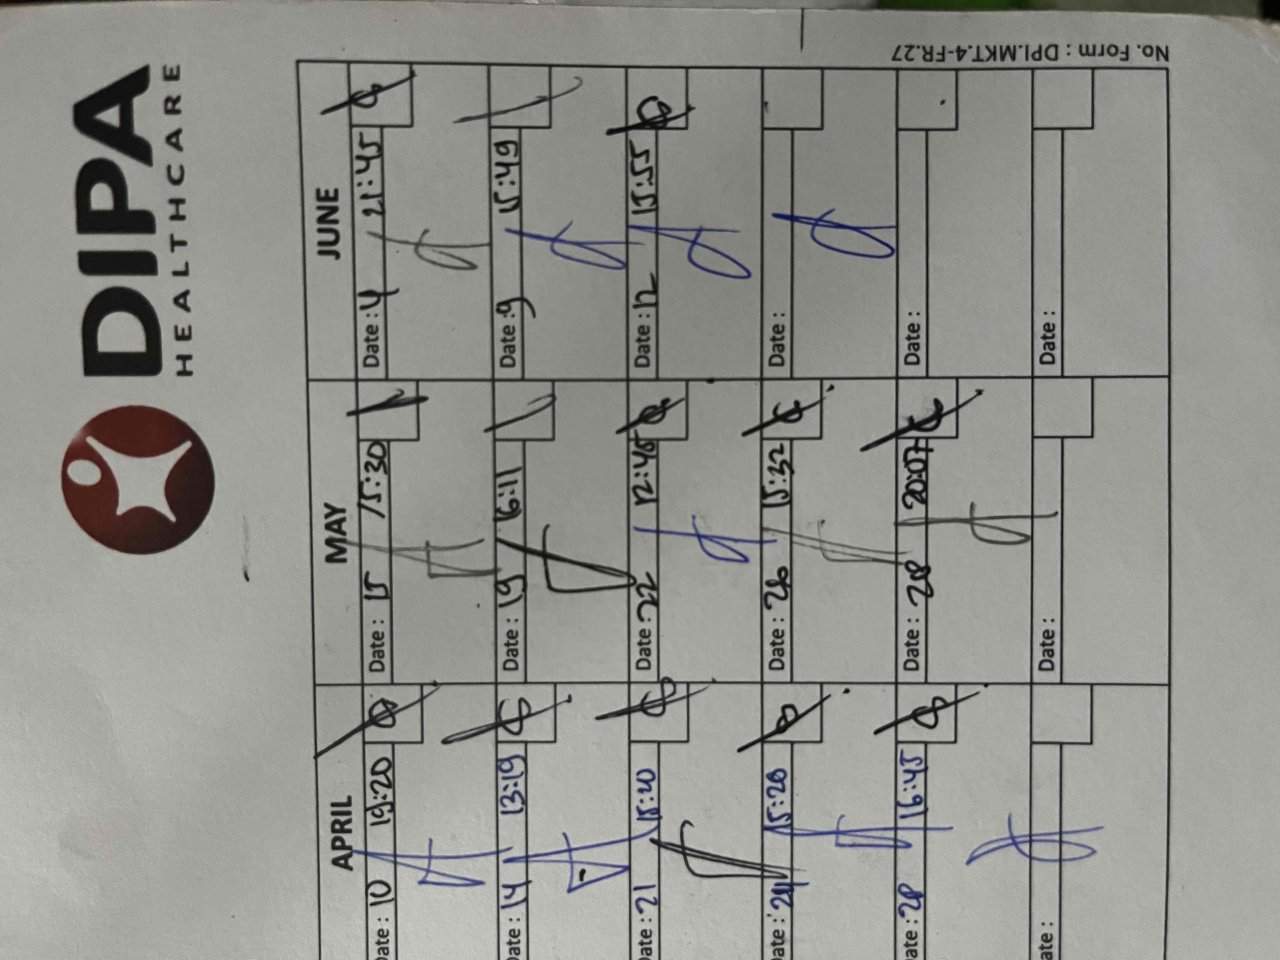 DIPA
HEALTHCARE
No. Form : DPI.MKT.4-FR.27
APRIL MAY JUNE
Date : 10 19:20
Date : 15 15:30
Date : 4 21:45
Date : 14 13:19
Date : 19 16:11
Date : 9 15:49
Date : 21
Date : 22 12:45
Date : 12 15:55
Date : 24
Date : 26 15:32
Date :
Date : 28 16:45
Date : 28 20:07
Date :
Date :
Date :
Date :